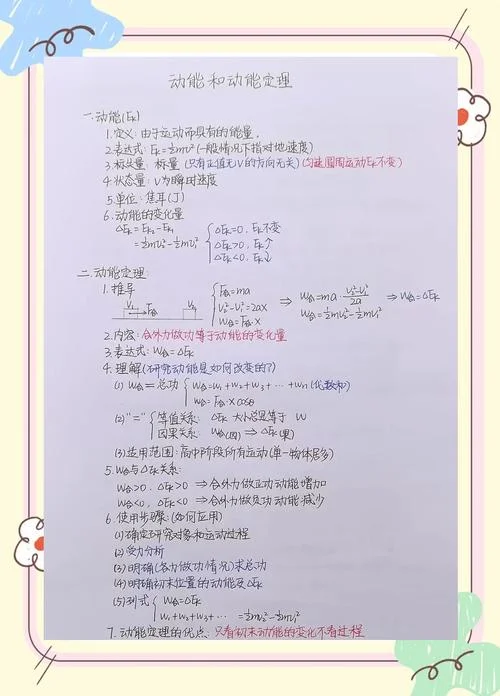 动能和动能定理
一.动能(Ek)
1.定义:由于运动而具有的能量.
2.表达式:Ek=½mv²(一般情况下指对地速度)
3.标矢量:标量(只有正值无V的方向无关)(匀速圆周运动Ek不变)
4.状态量:V为瞬时速度
5.单位:焦耳(J)
6.动能的变化量
ΔEk=Ek₂-Ek₁
=½mv₂²-½mv₁²
ΔEk=0, Ek不变
ΔEk>0, Ek↑
ΔEk<0, Ek↓
二.动能定理:
1.推导
V₁ F合 V₂
F合=ma
v₂²-v₁²=2ax
W合=F合·x
⇒ W合=ma·(v₂²-v₁²)/2a
W合=½mv₂²-½mv₁²
⇒ W合=ΔEk
2.内容:合外力做功等于动能的变化量
3.表达式:W合=ΔEk
4.理解(研究动能是如何改变的?)
(1) W合=总功
W合=W₁+W₂+W₃+…+Wn(代数和)
W合=F合·xcosθ
(2)"="
等值关系: ΔEk 大小总是等于 W
因果关系: W合(因)⇒ΔEk(果)
(3)适用范围:高中阶段所有运动(单一物体居多)
5.W合与ΔEk关系:
W合>0, ΔEk>0 ⇒合外力做正功动能增加
W合<0, ΔEk<0 ⇒合外力做负功动能减少
6.使用步骤:(如何应用)
(1)确定研究对象和运动过程
(2)受力分析
(3)明确(各力做功情况)求总功
(4)明确初末位置的动能及ΔEk
(5)列式
W合=ΔEk
W₁+W₂+W₃+…=½mv₂²-½mv₁²
7.动能定理的优点:只看初末动能的变化不看过程